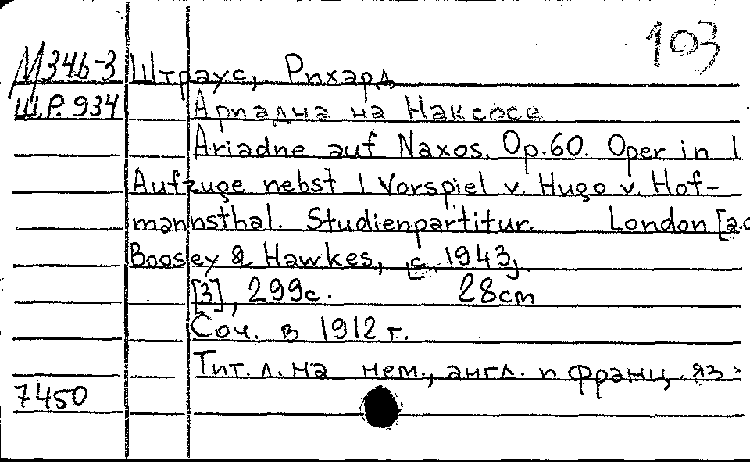 103
М346-3 Штраус, Рихард
Ш.Р. 934 Ариадна на Наксосе
Ariadne auf Naxos. Op.60. Oper in 1
Aufzuge nebst 1 Vorspiel v. Hugo v. Hof-
mannsthal. Studienpartitur. London [a.o
Boosey & Hawkes, [c. 1943].
[3], 299с. 28cm
Соч. в 1912 г.
Тит. л. на нем., англ. и франц. яз.
7450